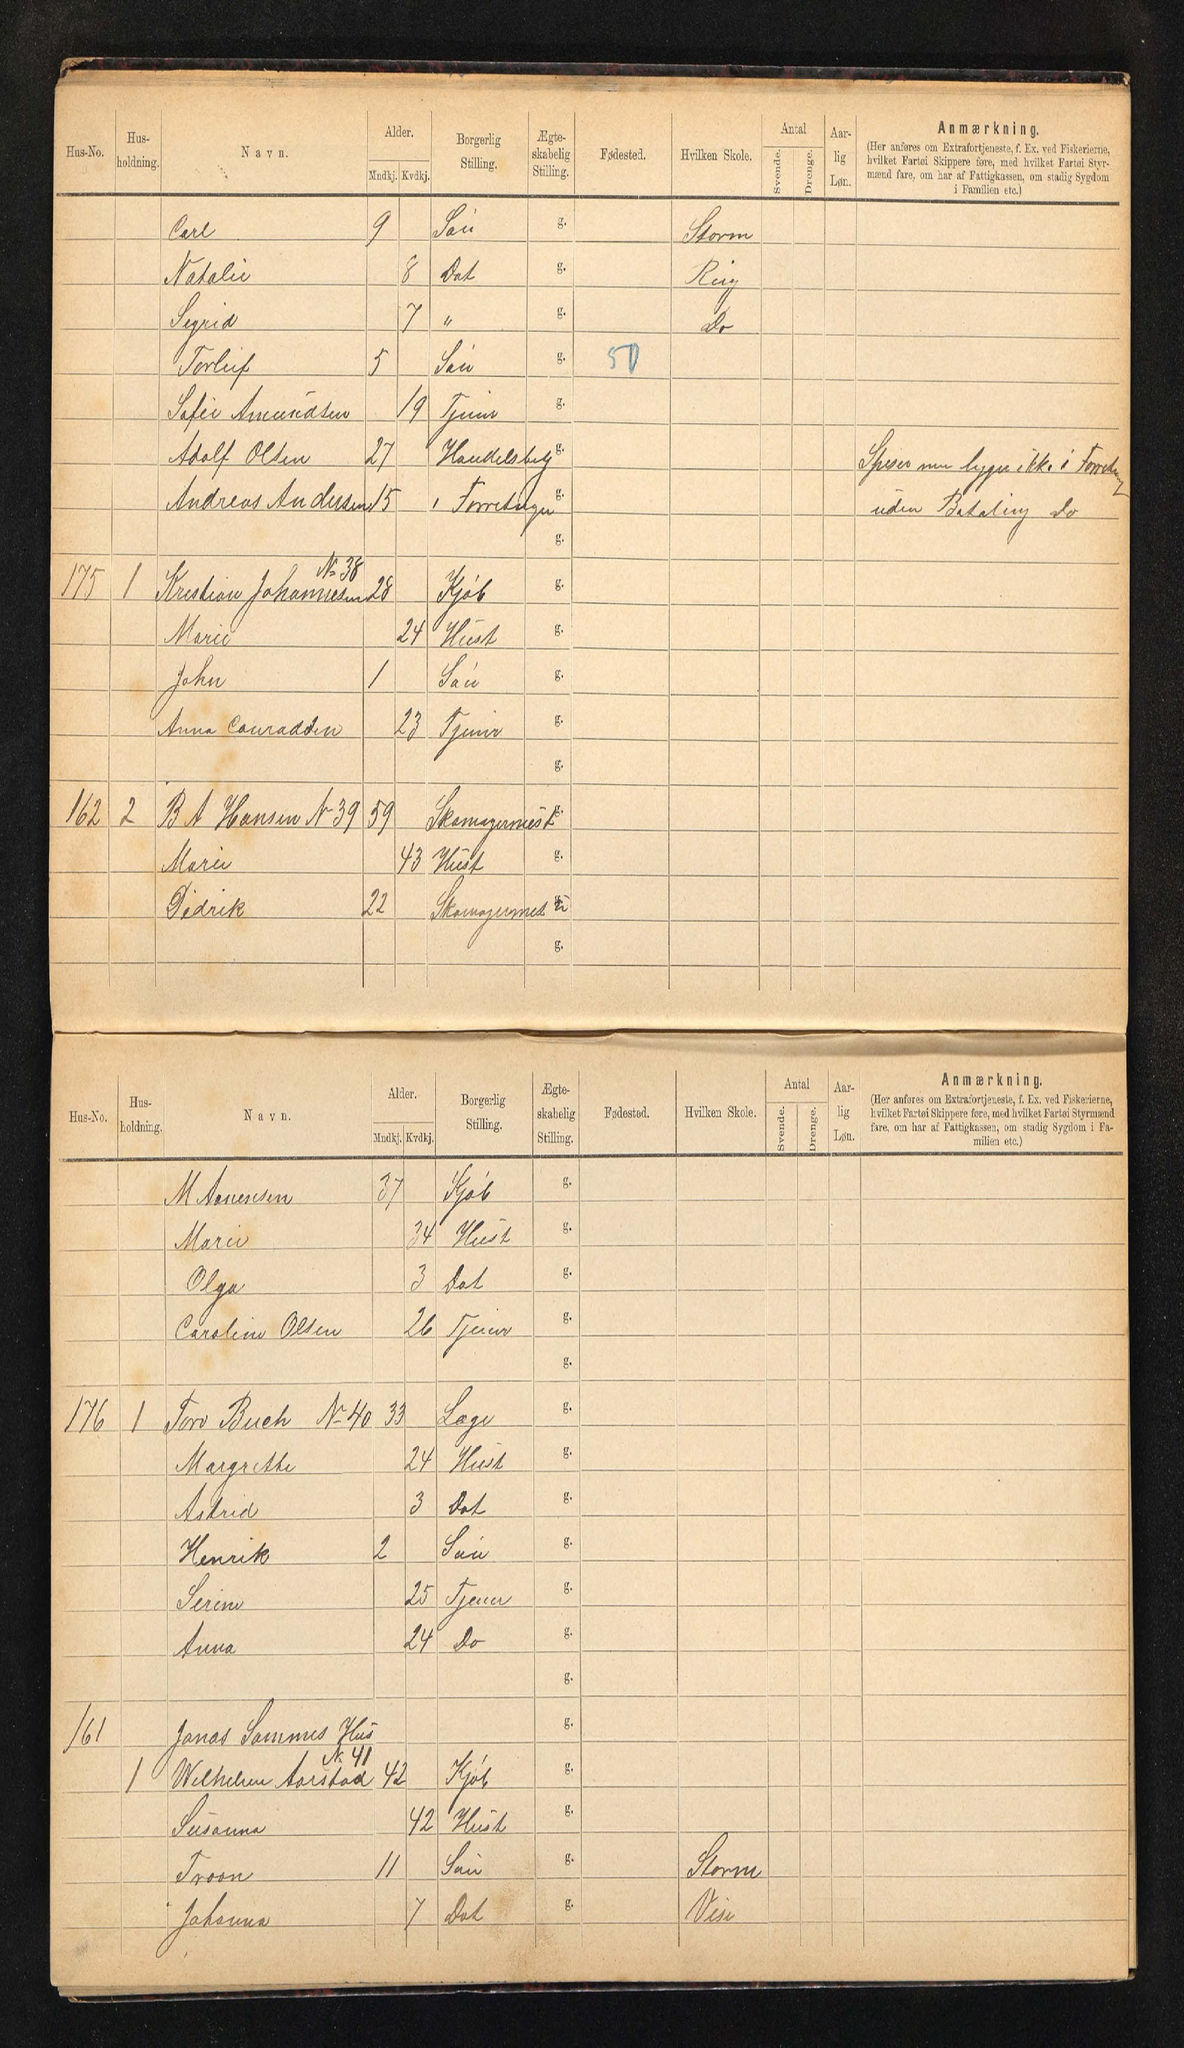 Hus-No. Hus-holdning. Navn. Alder. Mndkj. Kvdkj. Borgerlig Stilling. Ægte-skabelig Stilling. Fødested. Hvilken Skole. Antal Svende. Drenge. Aar-lig Løn. Anmærkning.
(Her anføres om Extrafortjeneste, f. Ex. ved Fiskerierne,
hvilket Fartøi Skippere føre, med hvilket Fartøi Styr-
mænd fare, om har af Fattigkassen, om stadig Sygdom
i Familien etc.)
Carl 9 Søn g. Storm
Natalie 8 Dat g. Ring
Sigrid 7 " g. Do
Torleif 5 Søn g. 50
Sofie Amundsen 19 Tjener g.
Adolf Olsen 27 Handelsbetj g. Spiser men ligger ikke i Forretng
Andreas Andersen 15 i Forretnigen g. uden Betaling Do
g.
No 38
175 1 Kristian Johannesen 28 Kjøb g.
Marie 24 Hust g.
John 1 Søn g.
Anna Conradsen 23 Tjener g.
g.
162 2 B A Hansen No 39 59 Skomagermest g.
Marie 43 Hust g.
Didrik 22 Skomagermest g.
g.
Hus-No. Hus-holdning. Navn. Alder. Mndkj. Kvdkj. Borgerlig Stilling. Ægte-skabelig Stilling. Fødested. Hvilken Skole. Antal Svende. Drenge. Aar-lig Løn. Anmærkning.
(Her anføres om Extrafortjeneste, f. Ex. ved Fiskerierne,
hvilket Fartøi Skippere føre, med hvilket Fartøi Styrmænd
fare, om har af Fattigkassen, om stadig Sygdom i Fa-
milien etc.)
M Aanensen 37 Kjøb g.
Marie 34 Hust g.
Olga 3 Dat g.
Caroline Olsen 26 Tjener g.
g.
176 1 Torv Buch No 40 33 Læge g.
Margrethe 24 Hust g.
Astrid 3 Dat g.
Henrik 2 Søn g.
Serine 25 Tjener g.
Anna 24 Do g.
g.
161 Jonas Sømmes Hus g.
No 41
1 Wilhelm Aarstad 42 Kjøb g.
Susanna 42 Hust g.
Troon 11 Søn g. Storm
Johanna 7 Dat g. Vise